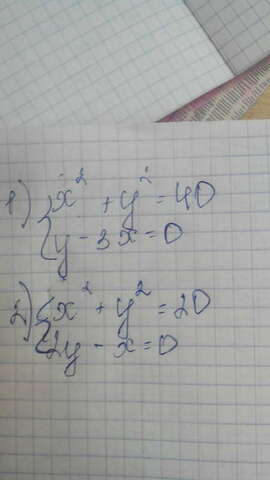 1) { x² + y² = 40
y - 3x = 0
2) { x² + y² = 20
2y - x = 0